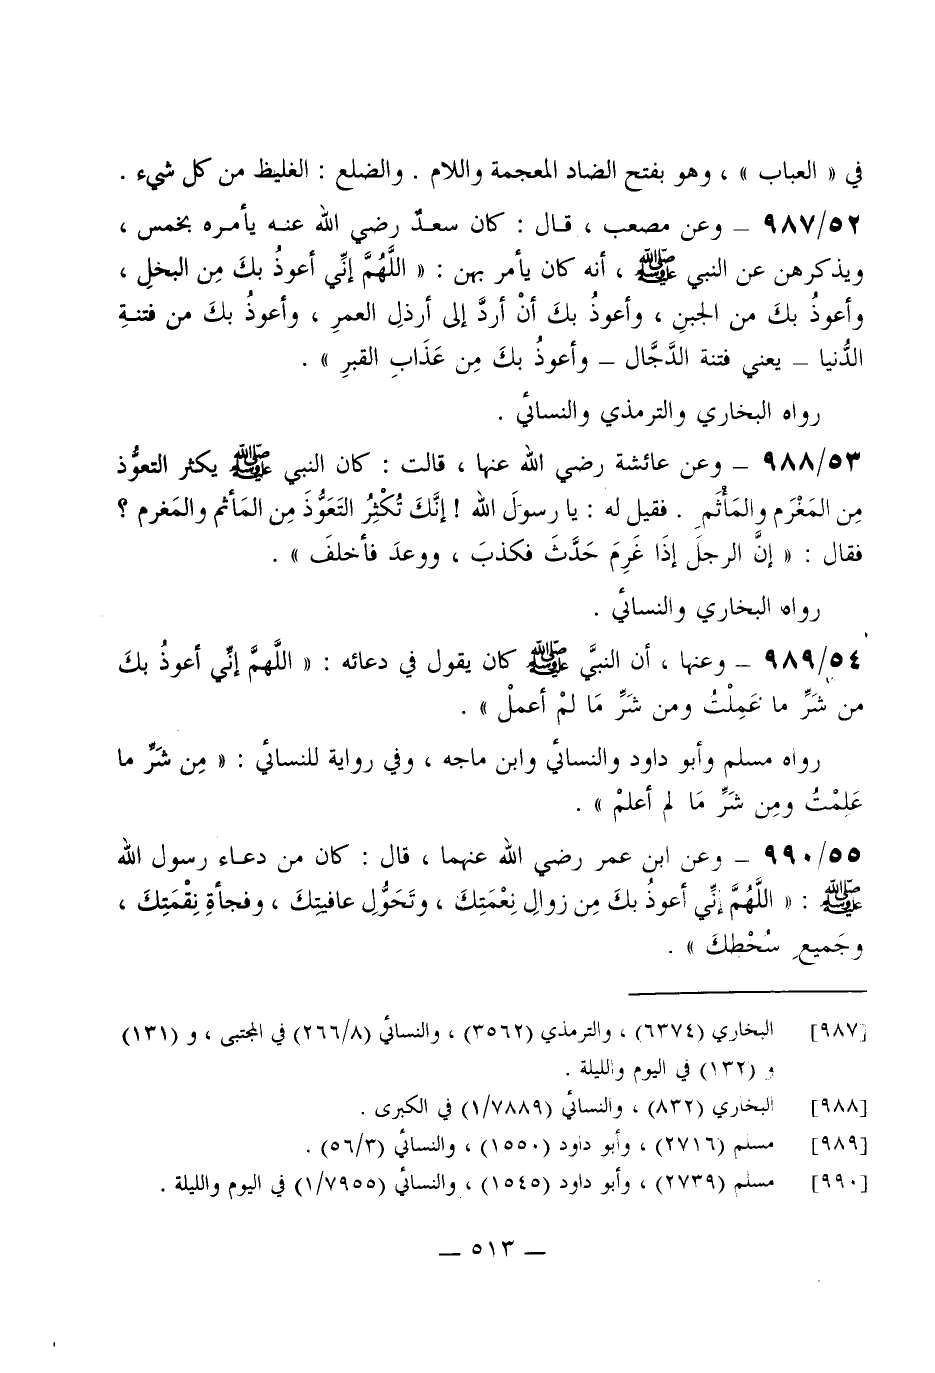 في « العباب » ، وهو بفتح الضاد المعجمة واللام . والضلع : الغليظ من كل شيء .
٩٨٧/٥٢ – وعن مصعب ، قال : كان سعدٌ رضي الله عنه يأمره بخمس ،
ويذكرهن عن النبي ﷺ ، أنه كان يأمر بهن : « اللَّهُمَّ إنِّي أعوذُ بكَ مِن البخلِ ،
وأعوذُ بكَ من الجبنِ ، وأعوذُ بكَ أنْ أردَّ إلى أرذلِ العمرِ ، وأعوذُ بكَ من فتنةِ
الدُّنيا – يعني فتنة الدَّجَّال – وأعوذُ بكَ مِن عَذَابِ القبرِ » .
رواه البخاري والترمذي والنسائي .
٩٨٨/٥٣ – وعن عائشة رضي الله عنها ، قالت : كان النبي ﷺ يكثر التعوُّذ
مِن المَغْرَم والمَأْثَمِ . فقيل له : يا رسولَ الله ! إنَّكَ تُكْثِرُ التَعَوُّذَ مِن المَأثم والمَغرم ؟
فقال : « إنَّ الرجلَ إذَا غَرِمَ حَدَّثَ فكذبَ ، ووعدَ فأخلفَ » .
رواه البخاري والنسائي .
٩٨٩/٥٤ – وعنها ، أن النبيَّ ﷺ كان يقول في دعائه : « اللَّهمَّ إنِّي أعوذُ بكَ
من شَرِّ ما عَمِلْتُ ومن شَرِّ مَا لمْ أعملْ » .
رواه مسلم وأبو داود والنسائي وابن ماجه ، وفي رواية للنسائي : « مِن شَرِّ ما
عَلِمْتُ ومِن شَرِّ مَا لم أعلمْ » .
٩٩٠/٥٥ – وعن ابن عمر رضي الله عنهما ، قال : كان من دعاء رسول الله
ﷺ : « اللَّهُمَّ إنِّي أعوذُ بكَ مِن زوالِ نِعْمَتِكَ ، وتَحَوُّلِ عافيتِكَ ، وفجأةِ نِقْمَتِكَ ،
وجَميعِ سُخْطِكَ » .
[٩٨٧] البخاري (٦٣٧٤) ، والترمذي (٣٥٦٢) ، والنسائي (٢٦٦/٨) في المجتبى ، و (١٣١)
و (١٣٢) في اليوم والليلة .
[٩٨٨] البخاري (٨٣٢) ، والنسائي (١/٧٨٨٩) في الكبرى .
[٩٨٩] مسلم (٢٧١٦) ، وأبو داود (١٥٥٠) ، والنسائي (٥٦/٣) .
[٩٩٠] مسلم (٢٧٣٩) ، وأبو داود (١٥٤٥) ، والنسائي (١/٧٩٥٥) في اليوم والليلة .
– ٥١٣ –